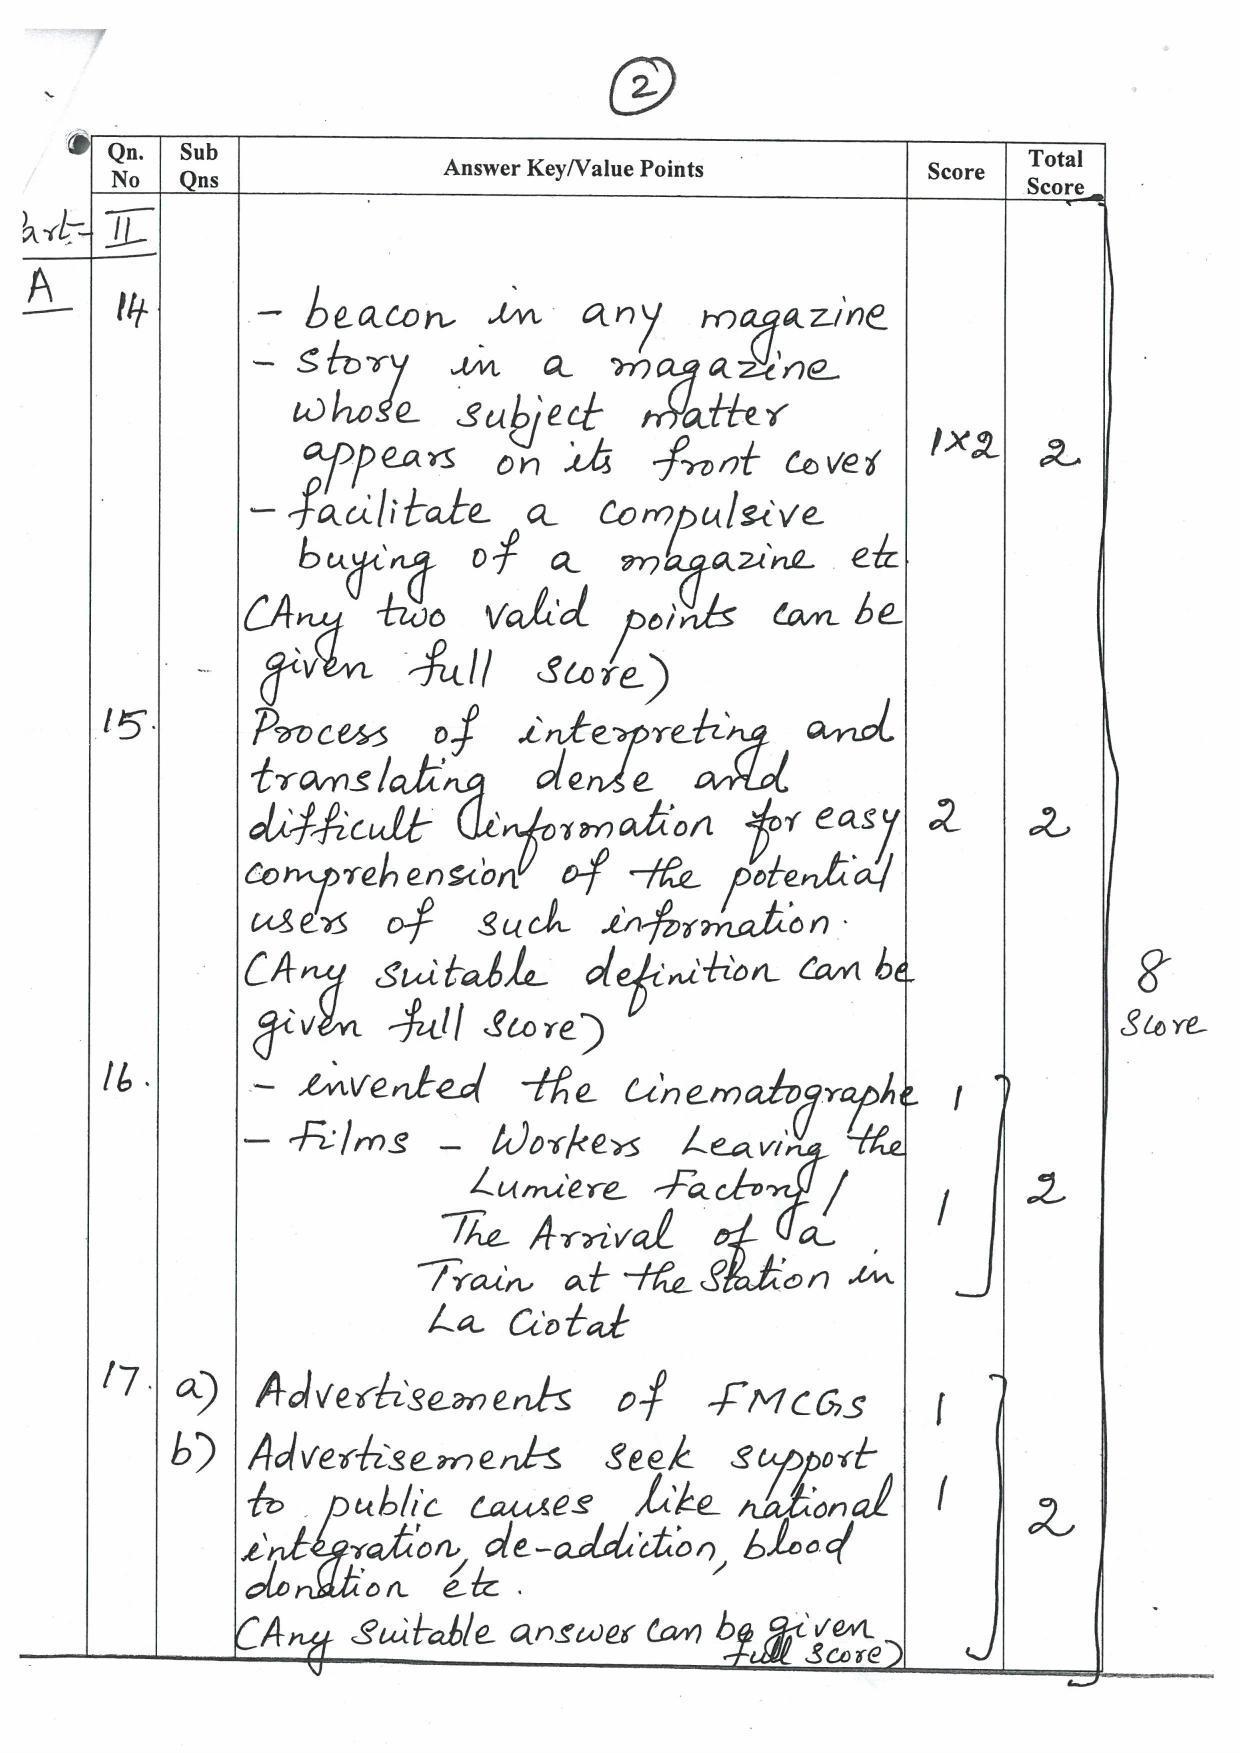 2
Qn. No
Sub Qns
Answer Key/Value Points
Score
Total Score
art- II
A
14 - beacon in any magazine
- story in a magazine
whose subject matter
appears on its front cover 1×2 2
- facilitate a compulsive
buying of a magazine etc
(Any two valid points can be
given full score)
15. Process of interpreting and
translating dense and
difficult information for easy 2 2
comprehension of the potential
users of such information.
(Any suitable definition can be
given full score)
8
Score
16. - invented the cinematographe 1
- Films - Workers Leaving the
Lumiere Factory / 1 2
The Arrival of a
Train at the Station in
La Ciotat
17. a) Advertisements of FMCGs 1
b) Advertisements seek support
to public causes like national 1 2
integration, de-addiction, blood
donation etc.
(Any suitable answer can be given
full score)